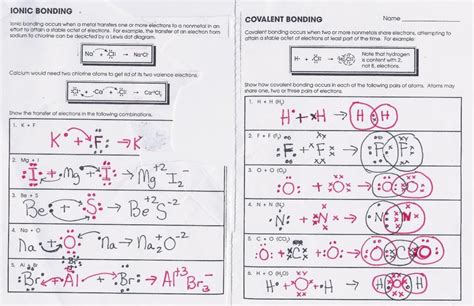 IONIC BONDING
Ionic bonding occurs when a metal transfers one or more electrons to a nonmetal in an
effort to attain a stable octet of electrons. For example, the transfer of an electron from
sodium to chlorine can be depicted by a Lewis dot diagram.
Calcium would need two chlorine atoms to get rid of its two valence electrons.
Show the transfer of electrons in the following combinations.
1. K + F
K + F → K
2. Mg + I
I + Mg + I → Mg+2 I2-
3. Be + S
Be + S → Be+2 S-2
4. Na + O
Na + O → Na2+ O-2
5. Al + Br
Br + Al + Br → Al+3 Br3-
Br
COVALENT BONDING
Name
Covalent bonding occurs when two or more nonmetals share electrons, attempting to
attain a stable octet of electrons at least part of the time. For example:
Note that hydrogen
is content with 2,
not 8, electrons.
Show how covalent bonding occurs in each of the following pairs of atoms. Atoms may
share one, two or three pairs of electrons.
1. H + H (H2)
H + H → H H
2. F + F (F2)
F + F → F F
3. O + O (O2)
O + O → O O
4. N + N (N2)
N + N → N N
5. C + O (CO2)
O + C + O → O C O
6. H + O (H2O)
H + O + H → H O H